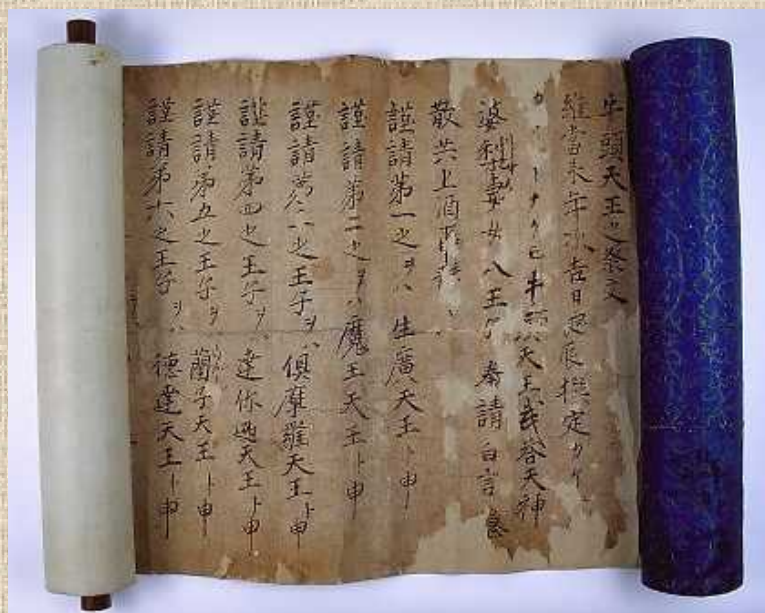 牛頭天王之祭文
維當来年次吉日良辰撰定
牛頭天王武答天神
婆利女八王子奉請白言
散共上酒
謹請第一之ヲハ生廣天王ト申
謹請第二之ヲハ魔王天王ト申
謹請第三之王子ヲハ倶摩羅天王ト申
謹請第四之王子ヲハ達你迦天王ト申
謹請第五之王子ヲハ蘭子天王ト申
謹請第六之王子ヲハ徳達天王ト申